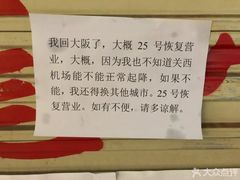 我回大阪了，大概 25 号恢复营
业，大概，因为我也不知道关西
机场能不能正常起降，如果不
能，我还得换其他城市。25 号恢
复营业。如有不便，请多谅解。
大众点评